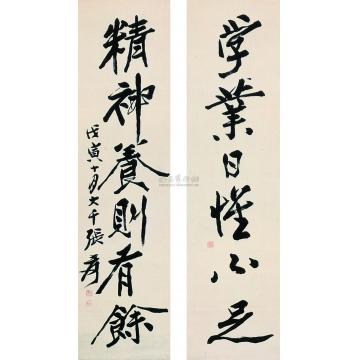 学業日慬心足
精神養則有餘
戊寅十月大千張爰